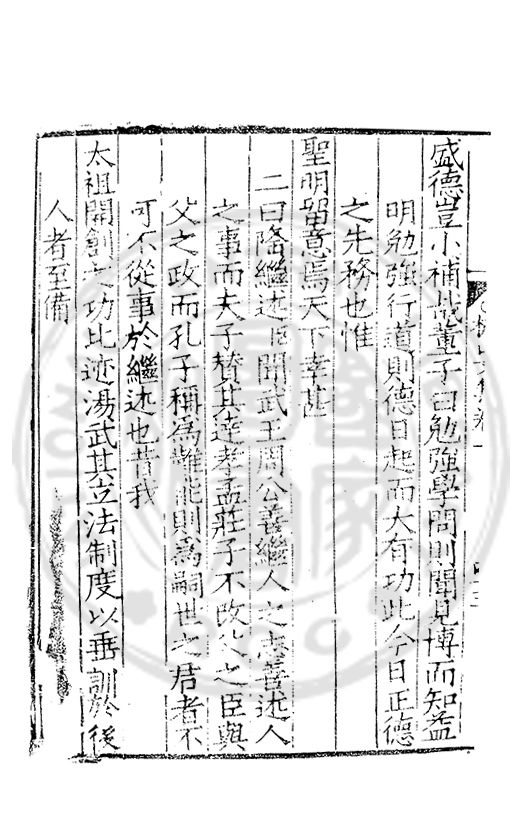 盛德豈小補哉董子曰勉強學問則聞見博而知益
明勉強行道則德日起而大有功此今日正德
之先務也惟
聖明留意焉天下幸甚
二曰隆繼述臣聞武王周公善繼人之志善述人
之事而夫子贊其達孝孟莊子不改父之臣與
父之政而孔子稱為難能則為嗣世之君者不
可不從事於繼述也昔我
太祖開創之功比迹湯武其立法制度以垂訓於後
人者至備